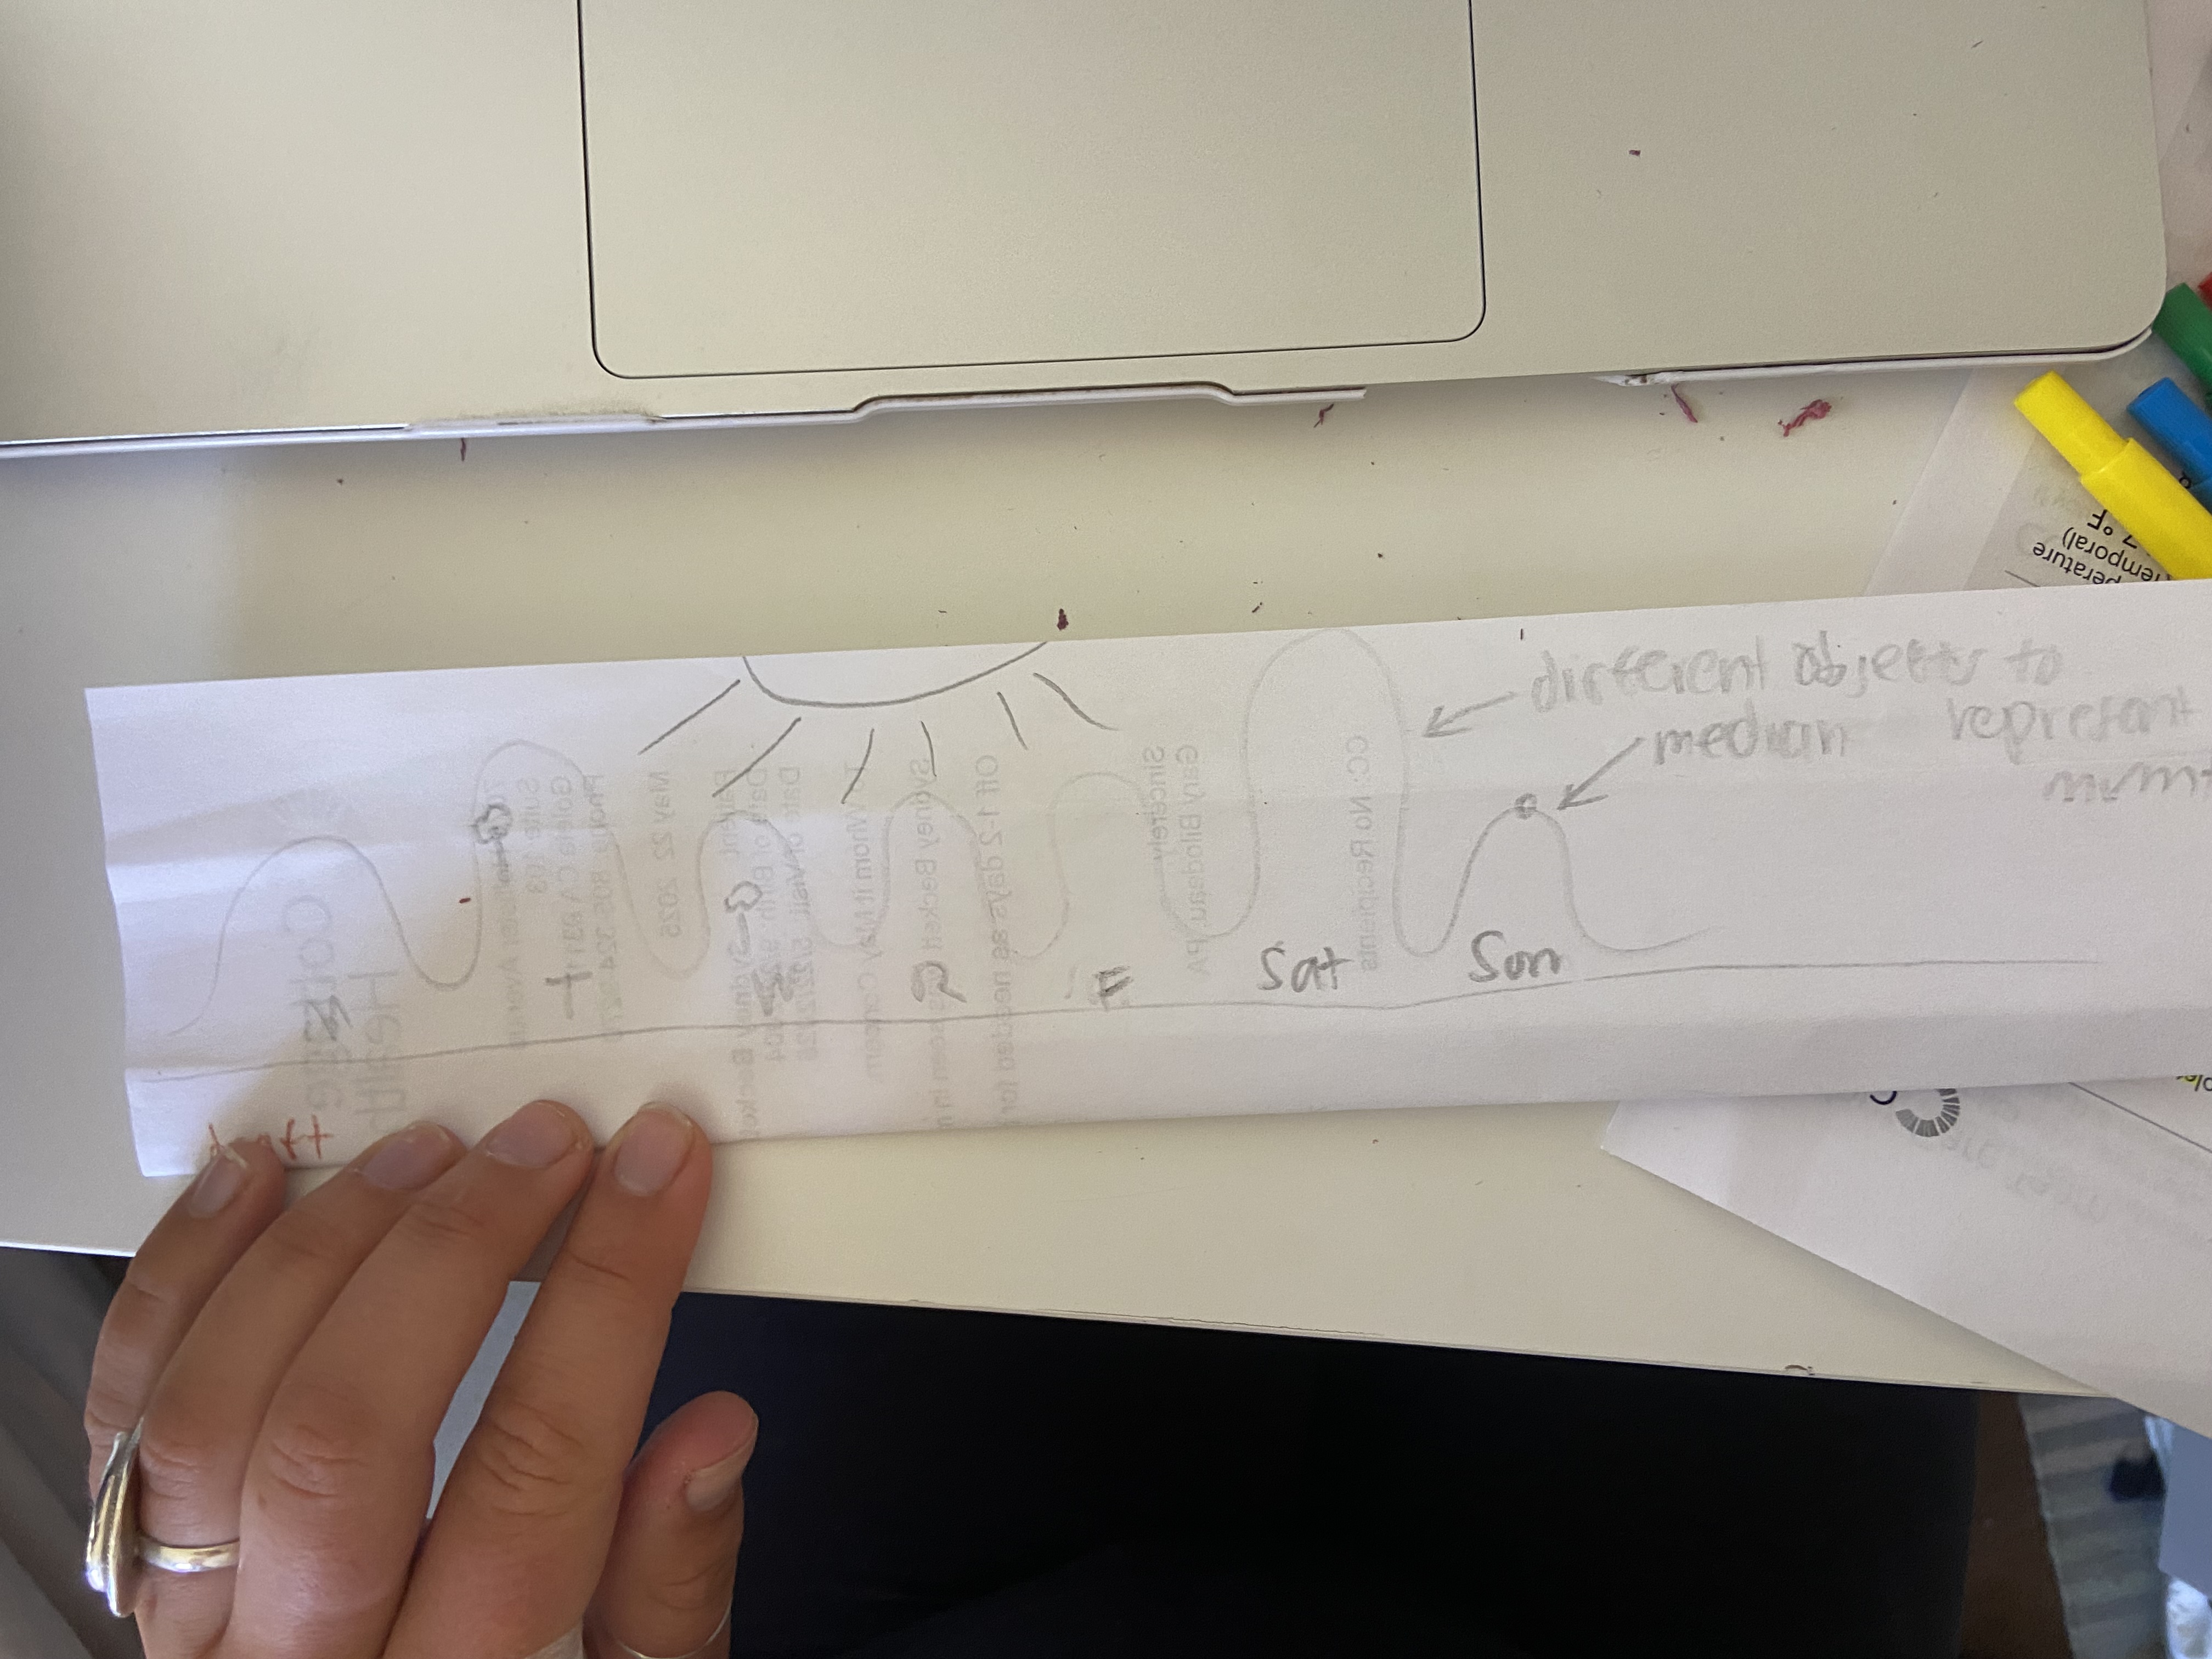 M
T
W
R
F
Sat
Sun
different objects to
represent
medium
Cottage
Health
Suite 103
Phone: 805 324
May 22 2025
Patient: Sydney Becket
Date of Birth:
Date of Visit: 5/22/2025
To Whom it May Concern,
Sydney Beckett was seen in
Off 1-2 days as needed for
Sincerely
Gary Bilodeau, PA
CC: No Recipients
perature
Temporal)
7 °F